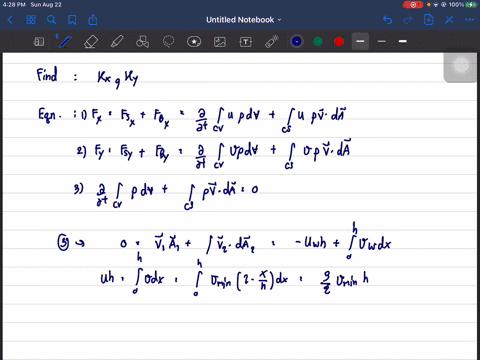 4:28 PM Sun Aug 22
100%
Untitled Notebook
Find : Kx , Ky
Eqn. : 1) Fx = FSx + FBx = ∂/∂t ∫CV u ρ dV + ∫CS u ρ V⃗ · dA⃗
2) Fy = FSy + FBy = ∂/∂t ∫CV v ρ dV + ∫CS v ρ V⃗ · dA⃗
3) ∂/∂t ∫CV ρ dV + ∫CS ρ V⃗ · dA⃗ = 0
③ → 0 = V⃗1 A⃗1 + ∫ V⃗2 · dA⃗2 = - U w h + ∫0^h v w dx
Uh = ∫0^h v dx = ∫0^h vmin (2 - x/h) dx = 3/2 vmin h